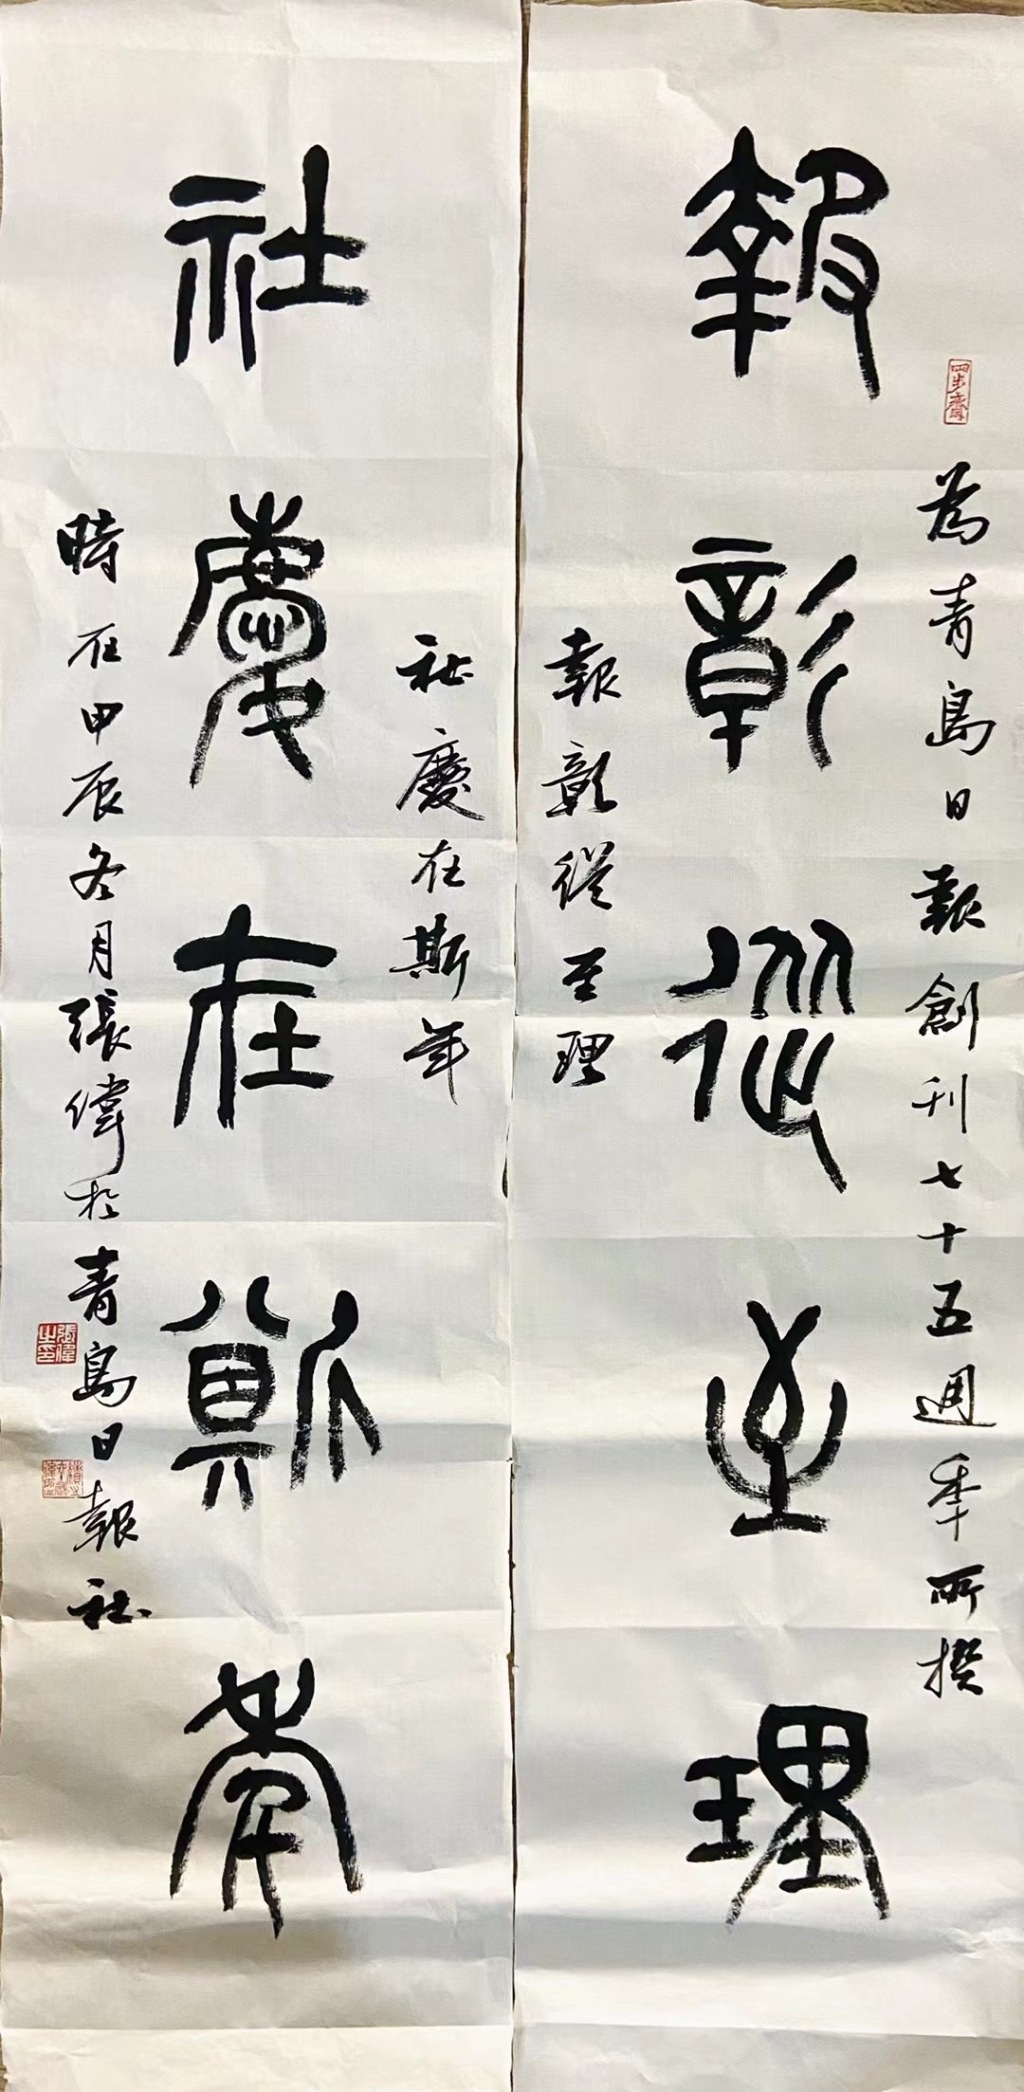 四步齋
為青島日報創刊七十五週年所撰
報彰從至理
報彰從至理
社慶在斯年
社慶在斯年
時在甲辰冬月張偉於青島日報社
張偉之印